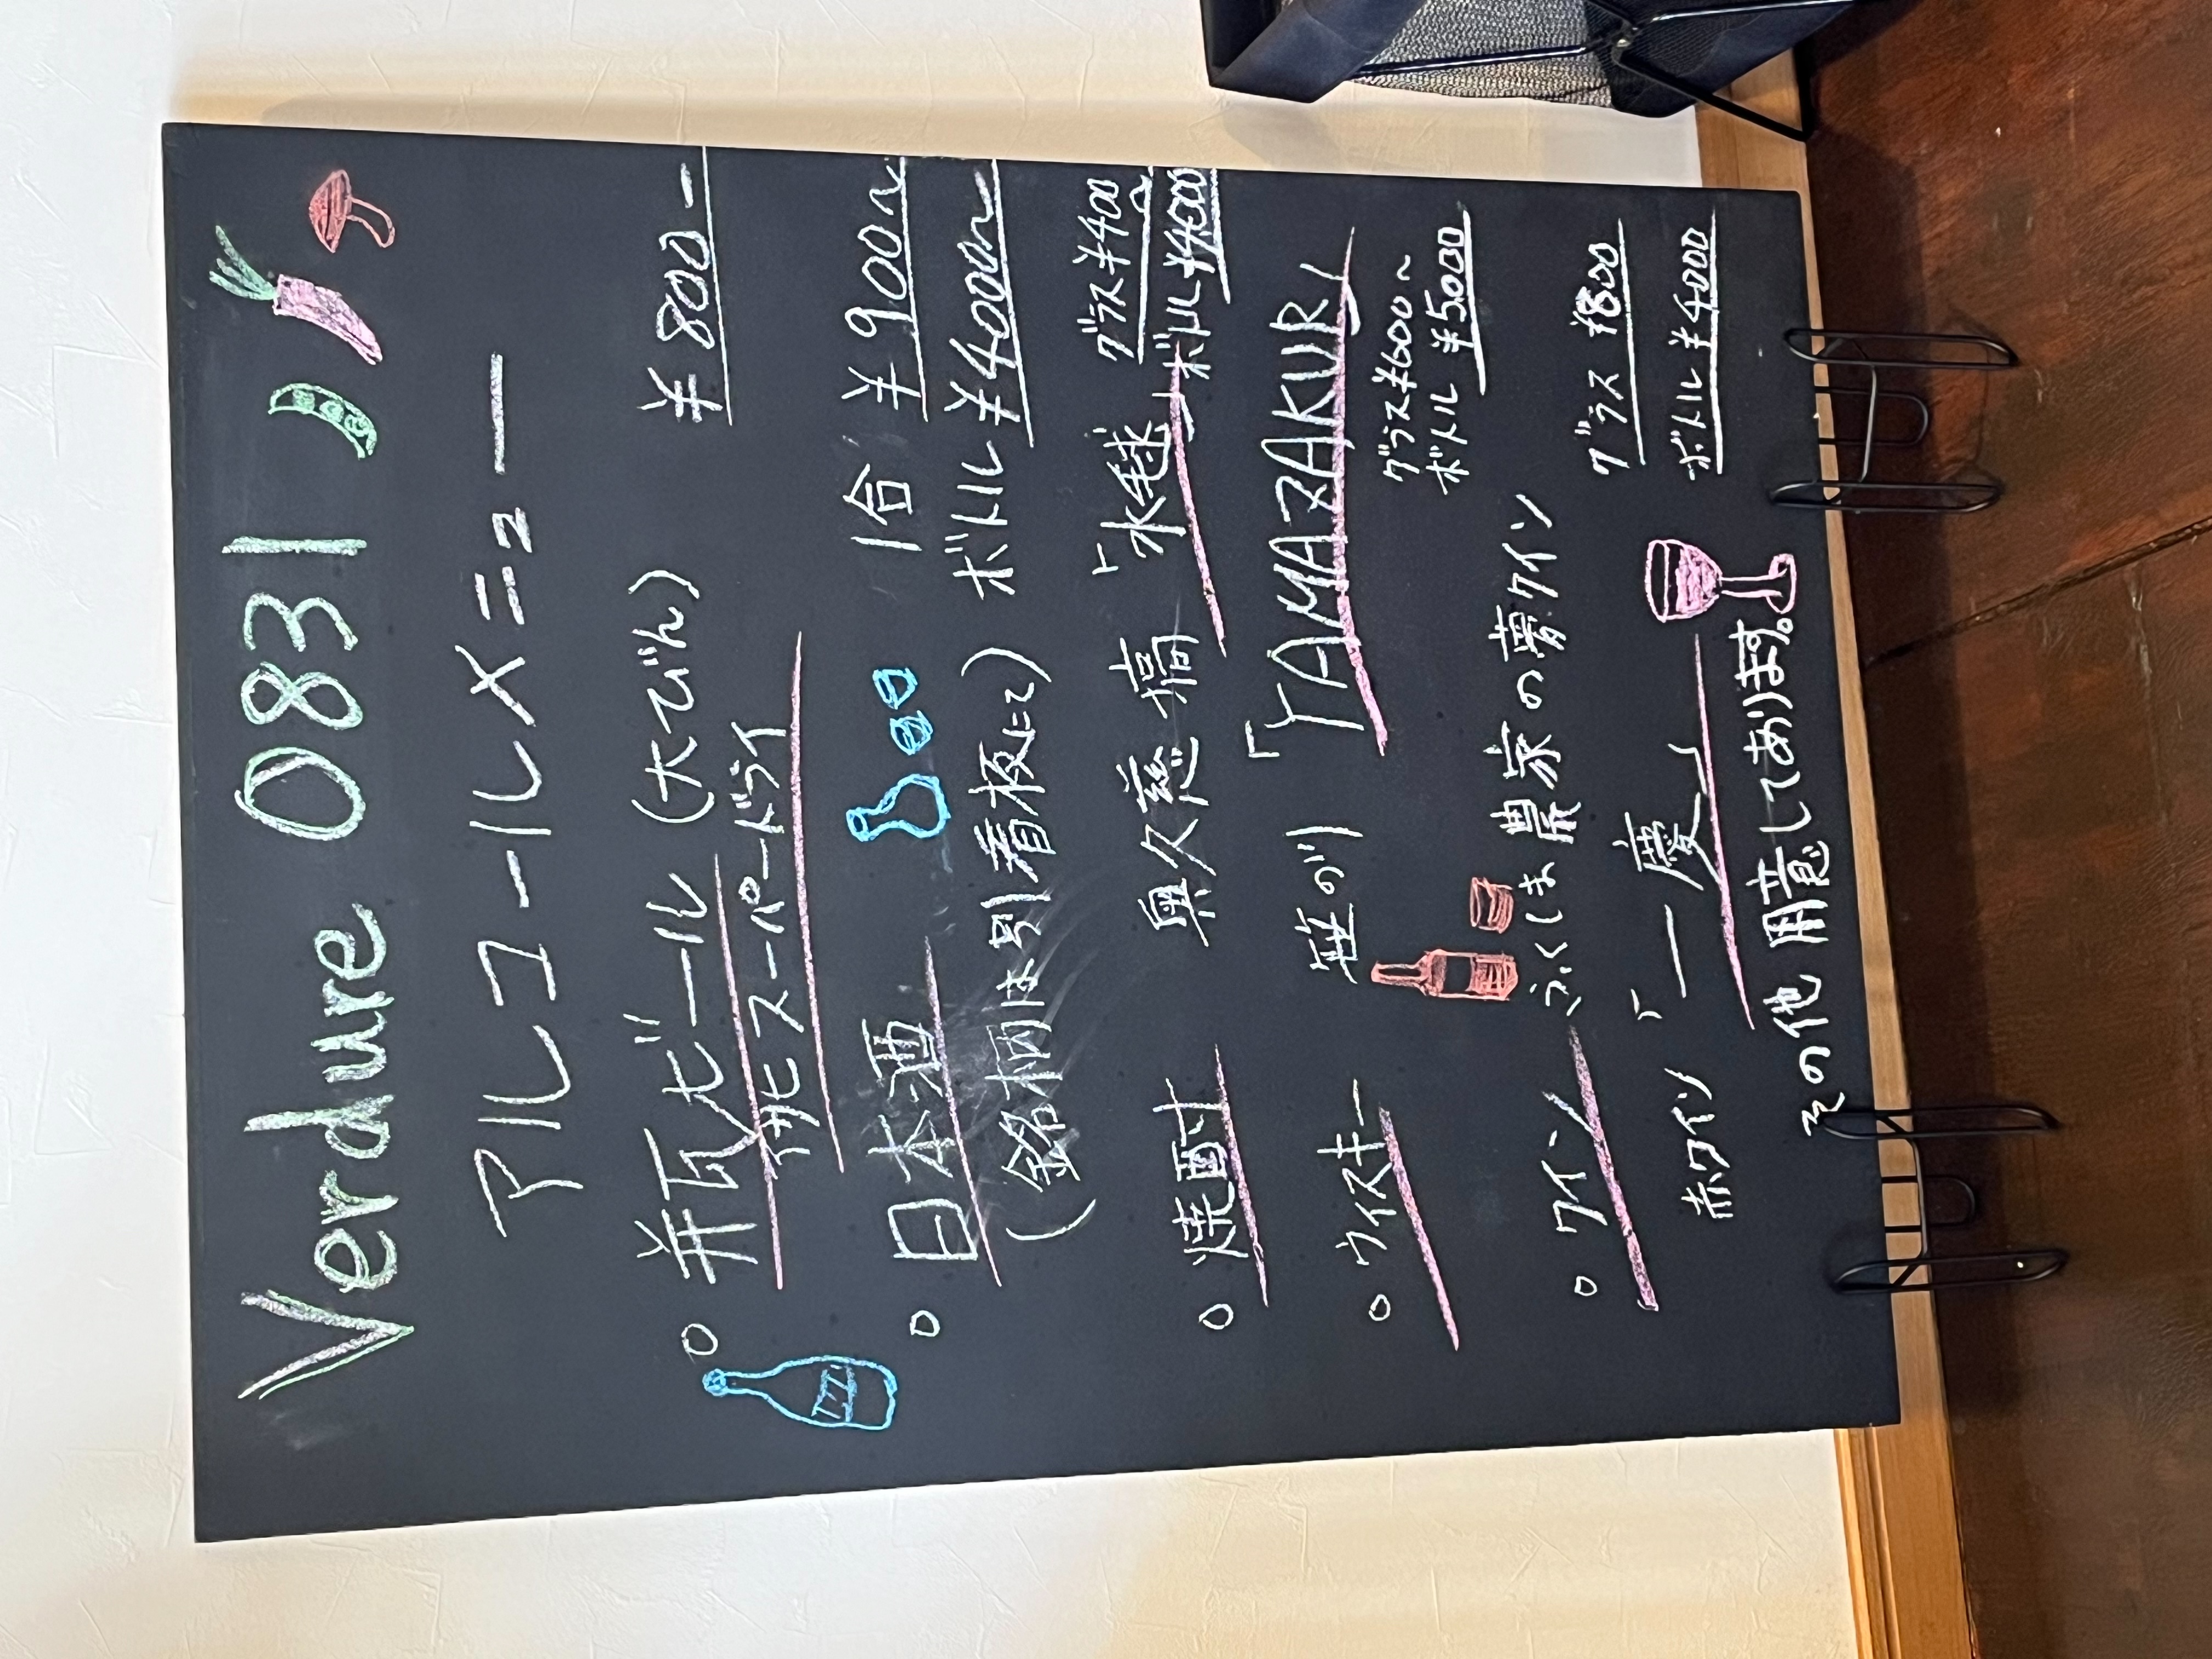 Verdure 0831
アルコールメニュー
○ 瓶ビール (大びん) ¥800-
スーパードライ
○ 日本酒 1合 ¥900~
(銘柄は別看板にて) ボトル ¥4000~
○ 焼酎 奥久慈 「水毬」 グラス¥400~
ボトル ¥4,000
○ ウィスキー 笹の川 「YAMAZAKURA」
グラス¥600~
ボトル ¥5,000
○ ワイン ふくしま農家の夢ワイン
グラス ¥800
赤ワイン 「一慶」
ボトル ¥4000
その他 用意してあります。